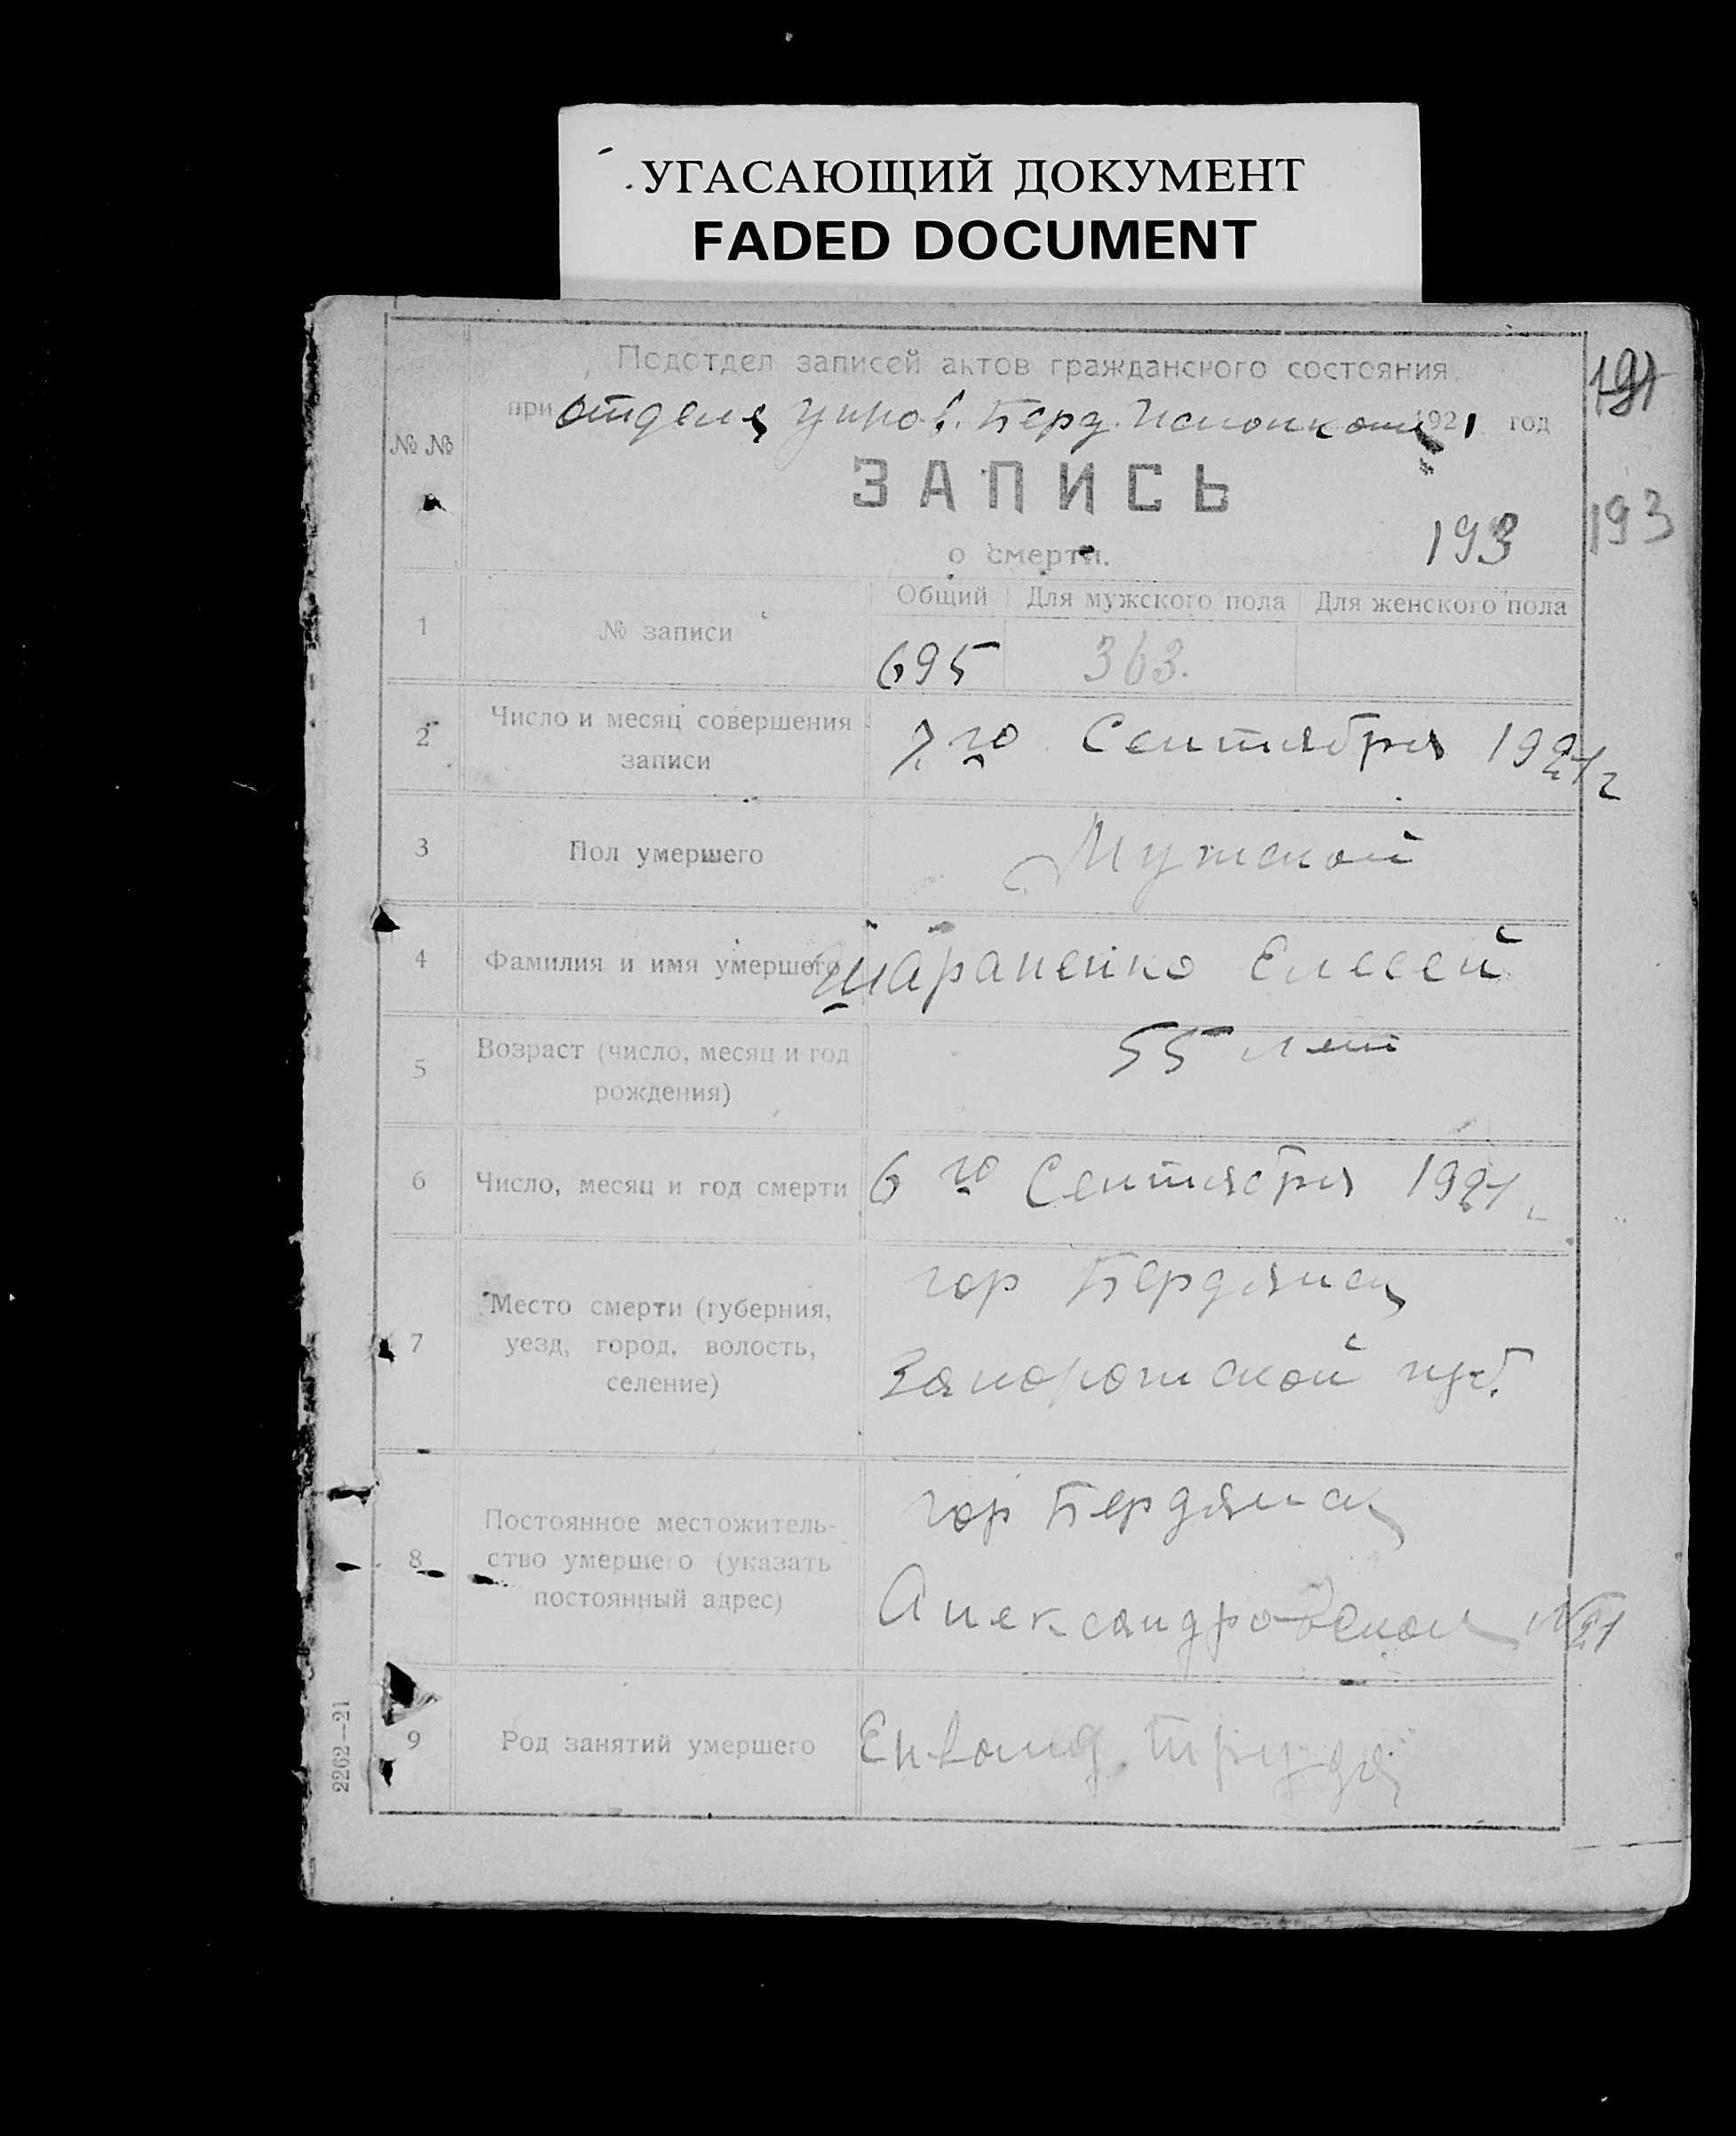 УГАСАЮЩИЙ ДОКУМЕНТ
FADED DOCUMENT
Подотдел записей актов гражданского состояния
при отдела управ. Берд. Исполкома 1921 год
191
№ №
ЗАПИСЬ
193
о смерти.
193
Общий Для мужского пола Для женского пола
1 № записи 695 363.
2 Число и месяц совершения записи 7го Сентября 1921г
3 Пол умершего Мужской
4 Фамилия и имя умершего Шарапенко Елесей
5 Возраст (число, месяц и год рождения) 55 лет
6 Число, месяц и год смерти 6го Сентября 1921 г
7 Место смерти (губерния, уезд, город, волость, селение)
гор Бердянск
Запорожской губ.
8 Постоянное местожительство умершего (указать постоянный адрес)
гор Бердянск
Александровская №21
9 Род занятий умершего труда
2262—21